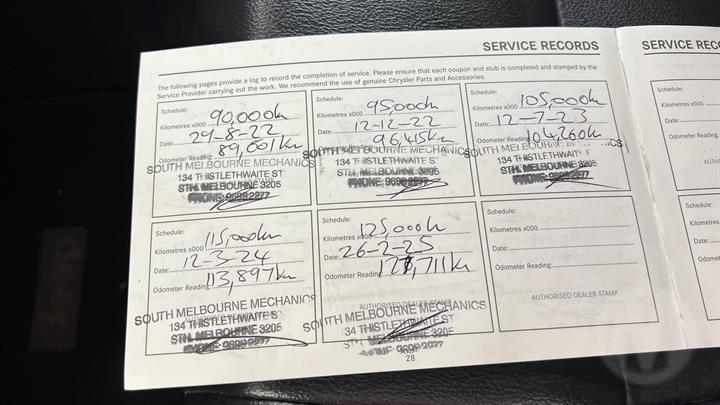 SERVICE RECORDS
The following pages provide a log to record the completion of service. Please ensure that each coupon and stub is completed and stamped by the
Service Provider carrying out the work. We recommend the use of genuine Chrysler Parts and Accessories.
Schedule:
Kilometres x000 90,000km
Date: 29-8-22
Odometer Reading: 89,601km
SOUTH MELBOURNE MECHANICS
134 THISTLETHWAITE ST
STH. MELBOURNE 3205
PHONE: 9699 2977
Schedule:
Kilometres x000 95,000km
Date: 12-12-22
SOUTH MELBOURNE MECHANICS
134 THISTLETHWAITE ST
STH. MELBOURNE 3205
PHONE: 9699 2977
Schedule:
Kilometres x000 105,000km
Date: 12-7-23
Odometer Reading: 104,260km
SOUTH MELBOURNE MECHANICS
134 THISTLETHWAITE ST
STH. MELBOURNE 3205
PHONE: 9699 2977
Schedule:
Kilometres x000 115,000km
Date: 12-3-24
Odometer Reading: 113,897km
SOUTH MELBOURNE MECHANICS
134 THISTLETHWAITE ST
STH. MELBOURNE 3205
PHONE: 9699 2977
Schedule:
Kilometres x000 125,000km
Date: 26-2-25
Odometer Reading:
AUTHORISED DEALER STAMP
SOUTH MELBOURNE MECHANICS
134 THISTLETHWAITE ST
STH. MELBOURNE 3205
PHONE: 9699 2977
Schedule:
Kilometres x000
Date:
Odometer Reading:
AUTHORISED DEALER STAMP
28
SERVICE REC
Schedule:
Kilometres x000
Date:
Odometer Reading:
AUTH
Schedule:
Kilometres
Date:
Odomet